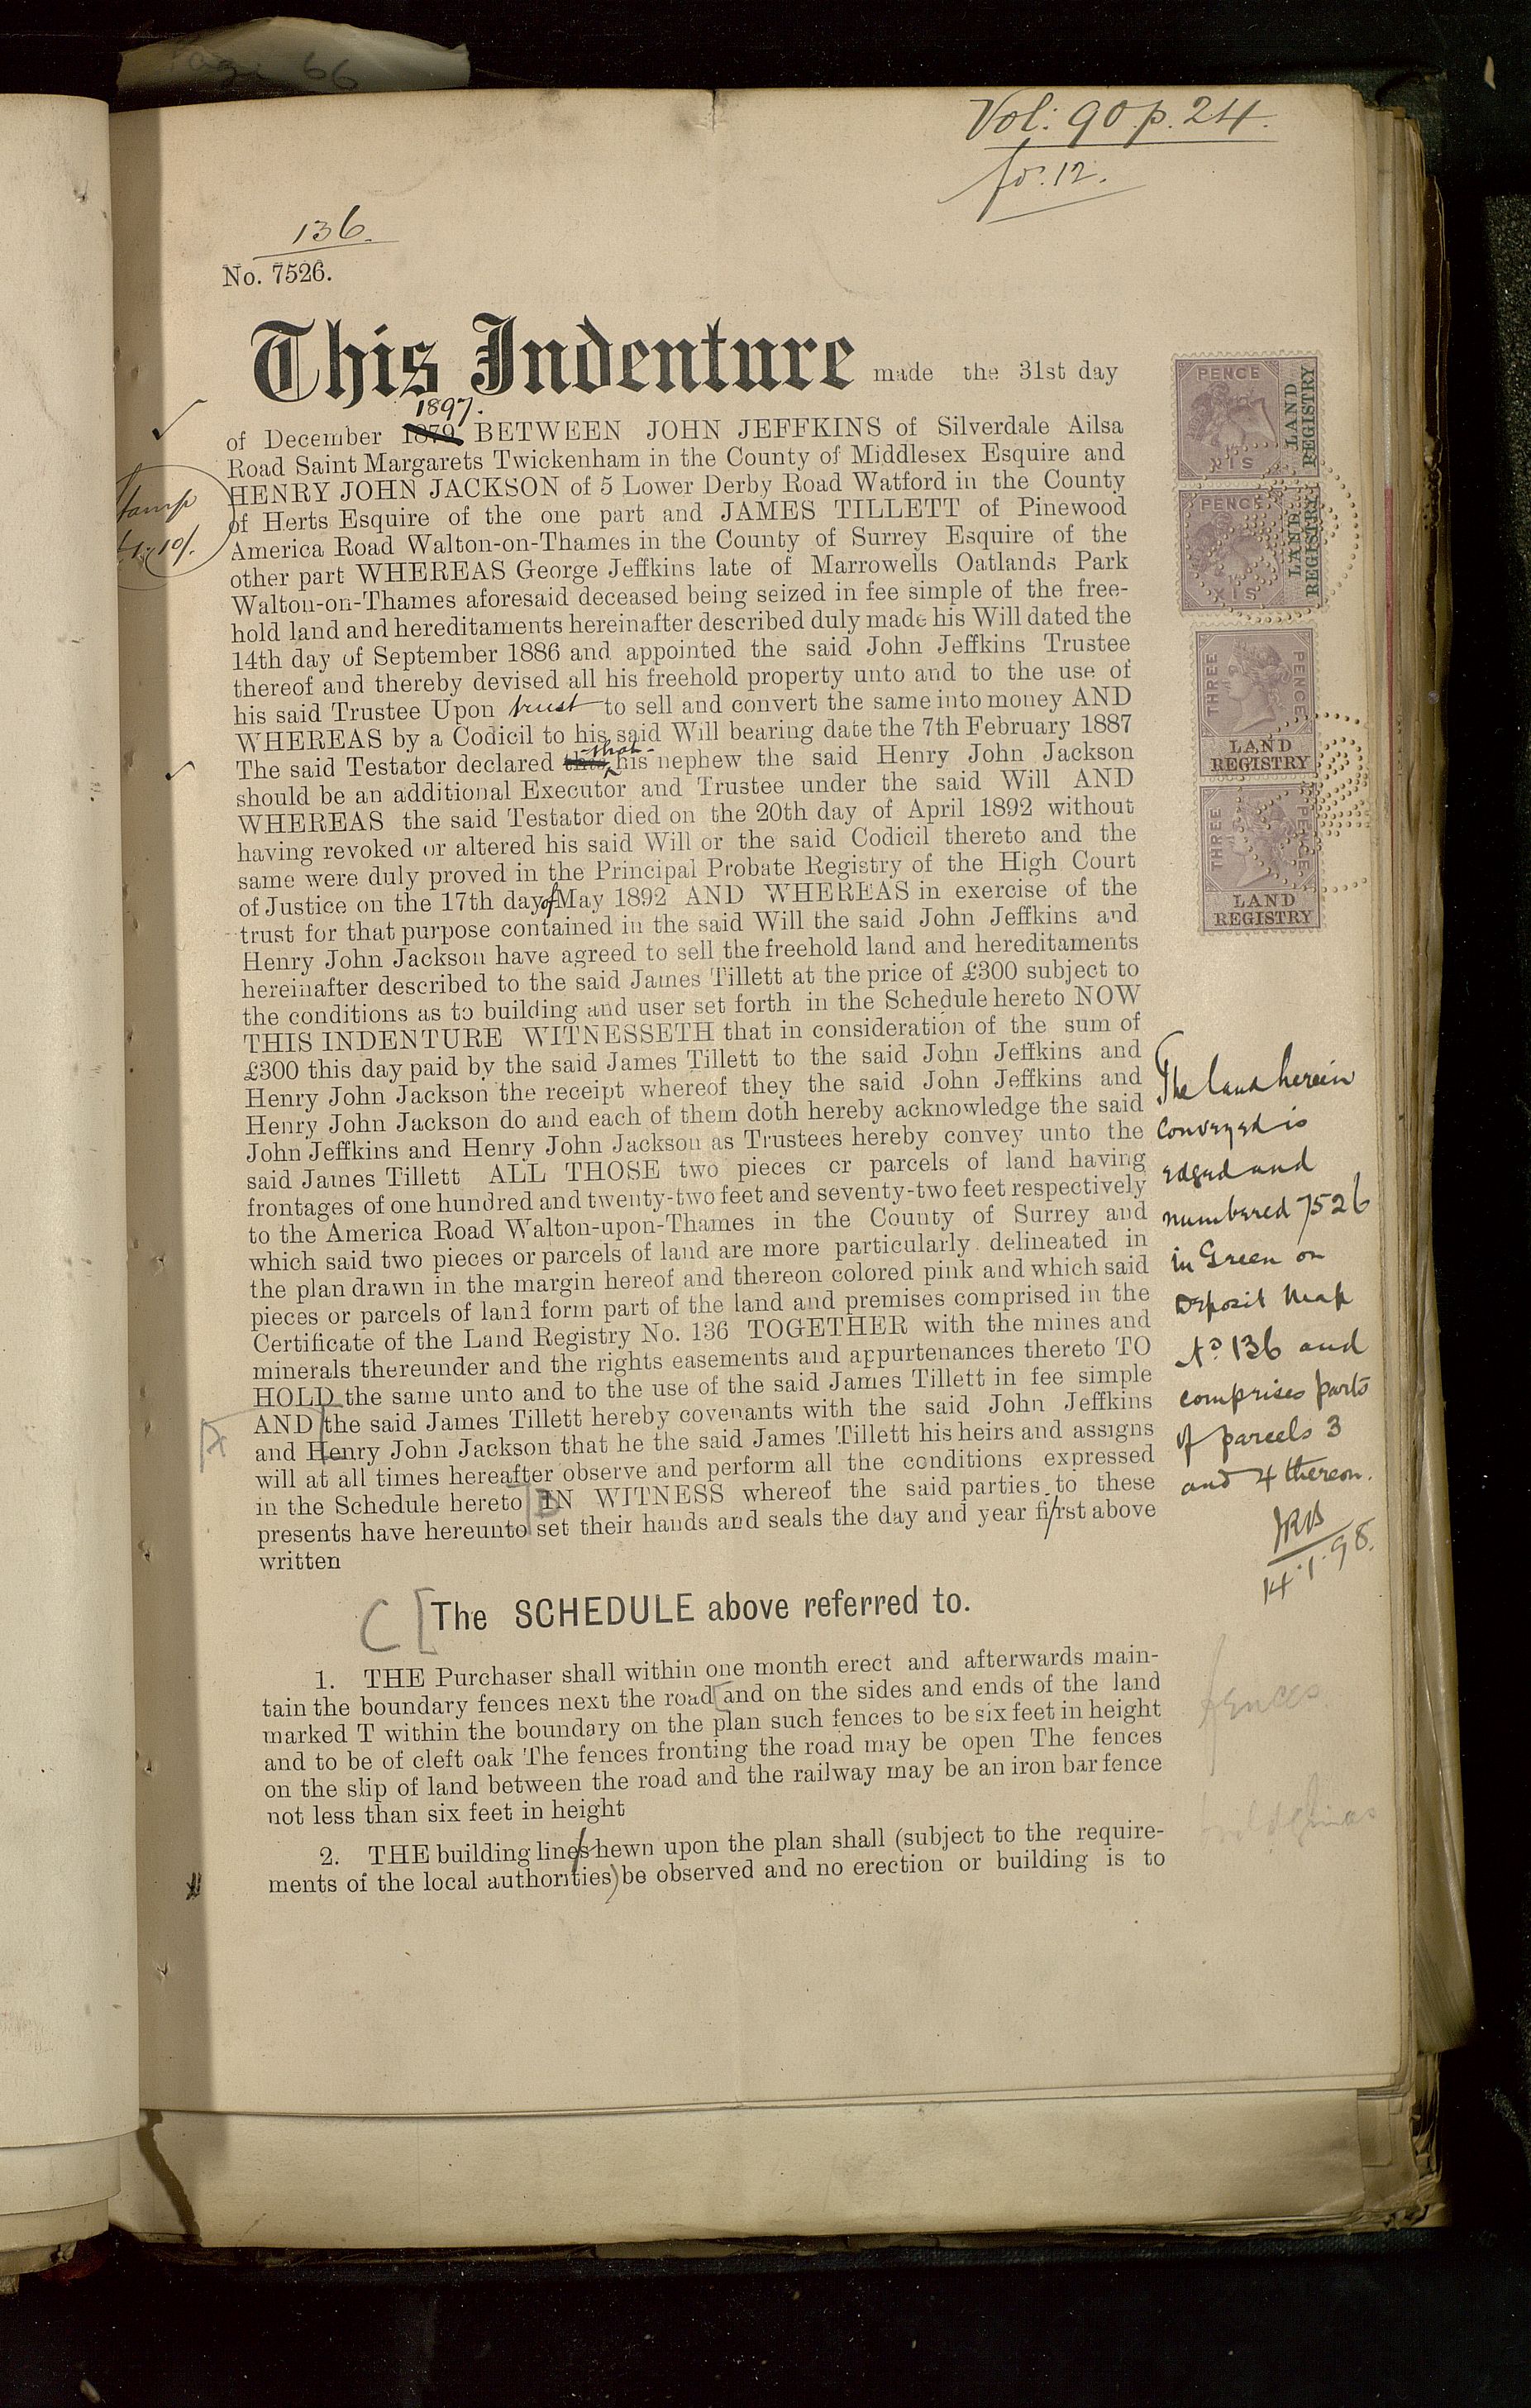 Vol: 90 p. 24.
fo. 12.
136.
No. 7526.
This Indenture made the 31st day
1897.
of December 1879 BETWEEN JOHN JEFFKINS of Silverdale Ailsa
Road Saint Margarets Twickenham in the County of Middlesex Esquire and
HENRY JOHN JACKSON of 5 Lower Derby Road Watford in the County
of Herts Esquire of the one part and JAMES TILLETT of Pinewood
America Road Walton-on-Thames in the County of Surrey Esquire of the
other part WHEREAS George Jeffkins late of Marrowells Oatlands Park
Walton-on-Thames aforesaid deceased being seized in fee simple of the free-
hold land and hereditaments hereinafter described duly made his Will dated the
14th day of September 1886 and appointed the said John Jeffkins Trustee
thereof and thereby devised all his freehold property unto and to the use of
his said Trustee Upon trust to sell and convert the same into money AND
WHEREAS by a Codicil to his said Will bearing date the 7th February 1887
The said Testator declared that his nephew the said Henry John Jackson
should be an additional Executor and Trustee under the said Will AND
WHEREAS the said Testator died on the 20th day of April 1892 without
having revoked or altered his said Will or the said Codicil thereto and the
same were duly proved in the Principal Probate Registry of the High Court
of Justice on the 17th day of May 1892 AND WHEREAS in exercise of the
trust for that purpose contained in the said Will the said John Jeffkins and
Henry John Jackson have agreed to sell the freehold land and hereditaments
hereinafter described to the said James Tillett at the price of £300 subject to
the conditions as to building and user set forth in the Schedule hereto NOW
THIS INDENTURE WITNESSETH that in consideration of the sum of
£300 this day paid by the said James Tillett to the said John Jeffkins and
Henry John Jackson the receipt whereof they the said John Jeffkins and
Henry John Jackson do and each of them doth hereby acknowledge the said
John Jeffkins and Henry John Jackson as Trustees hereby convey unto the
said James Tillett ALL THOSE two pieces or parcels of land having
frontages of one hundred and twenty-two feet and seventy-two feet respectively
to the America Road Walton-upon-Thames in the County of Surrey and
which said two pieces or parcels of land are more particularly delineated in
the plan drawn in the margin hereof and thereon colored pink and which said
pieces or parcels of land form part of the land and premises comprised in the
Certificate of the Land Registry No. 136 TOGETHER with the mines and
minerals thereunder and the rights easements and appurtenances thereto TO
HOLD the same unto and to the use of the said James Tillett in fee simple
AND the said James Tillett hereby covenants with the said John Jeffkins
and Henry John Jackson that he the said James Tillett his heirs and assigns
will at all times hereafter observe and perform all the conditions expressed
in the Schedule hereto IN WITNESS whereof the said parties to these
presents have hereunto set their hands and seals the day and year first above
written
C [The SCHEDULE above referred to.
1. THE Purchaser shall within one month erect and afterwards main-
tain the boundary fences next the road [and on the sides and ends of the land
marked T within the boundary on the plan such fences to be six feet in height
and to be of cleft oak The fences fronting the road may be open The fences
on the slip of land between the road and the railway may be an iron bar fence
not less than six feet in height
2. THE building line/shewn upon the plan shall (subject to the require-
ments of the local authorities) be observed and no erection or building is to
PENCE
SIX
LAND
REGISTRY
PENCE
SIX
LAND
REGISTRY
THREE PENCE
LAND
REGISTRY
THREE PENCE
LAND
REGISTRY
The land herein
conveyed is
edged and
numbered 7526
in Green on
Deposit Map
No. 136 and
comprises parts
of parcels 3
and 4 thereon.
14.1.98.
fences